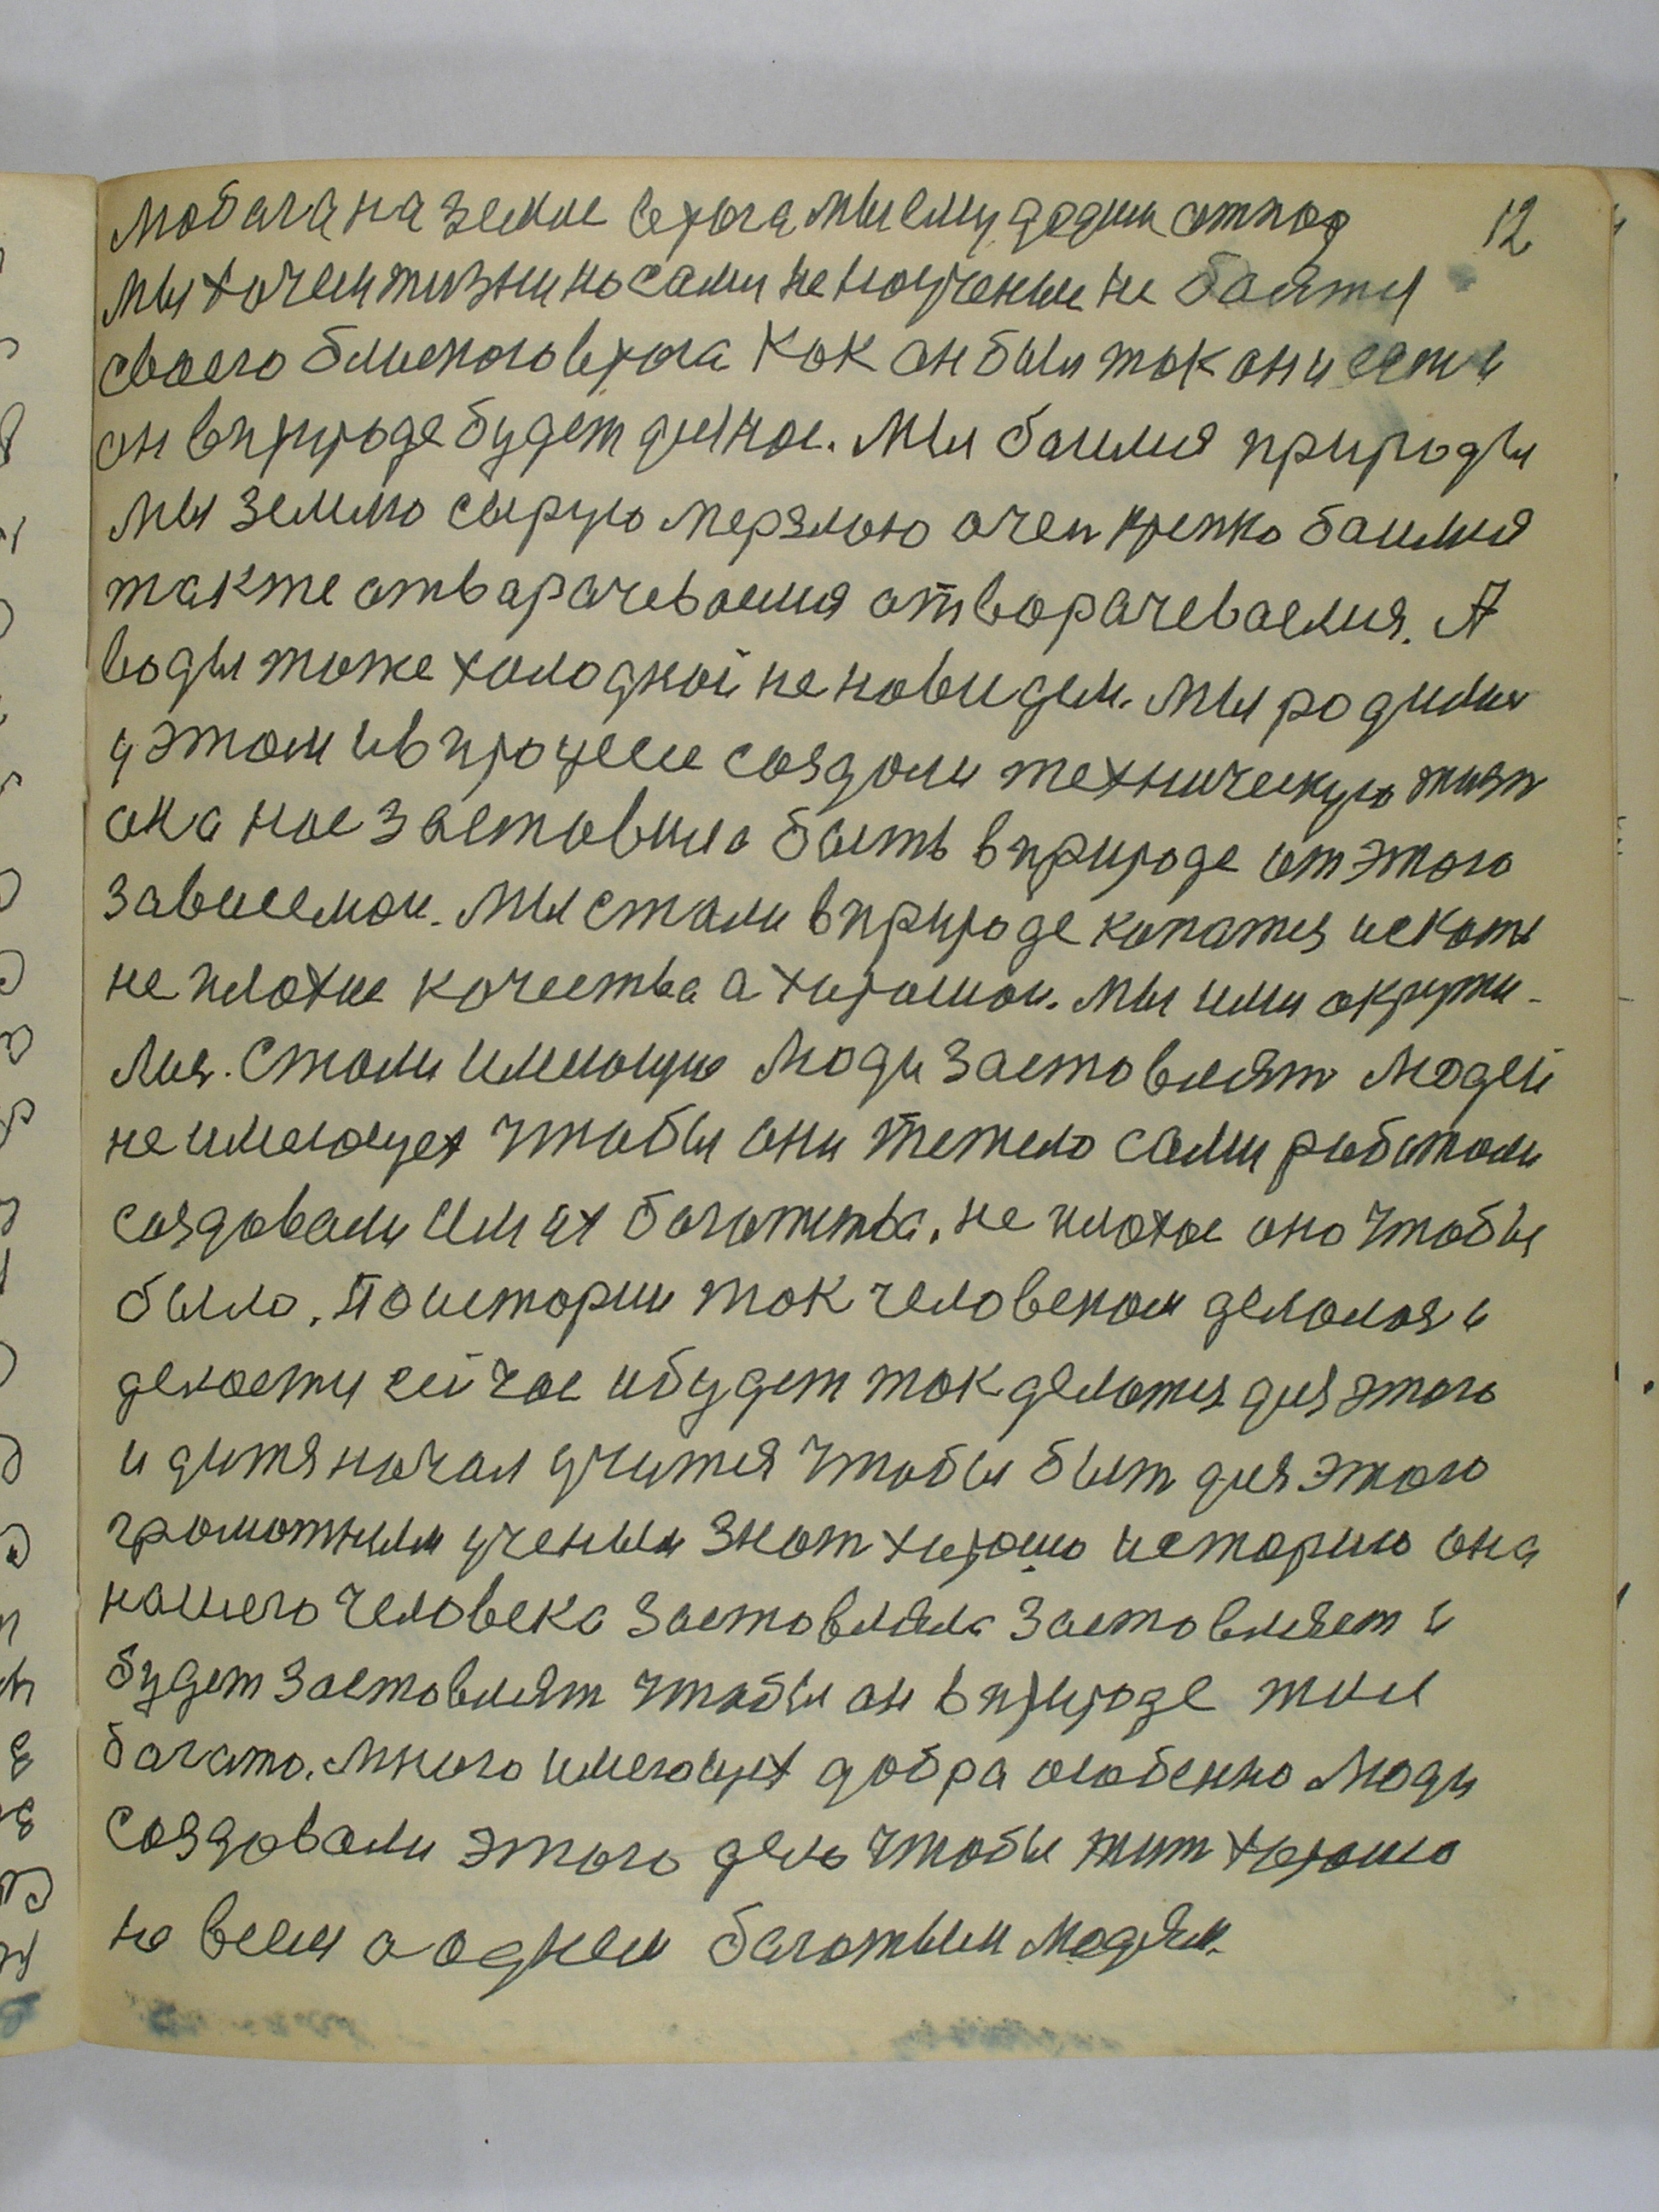 12
любага на земле врага мы ему дадим отпор
мы хочем жизни но сами не научены не боятся
своего блиского врага Как он был так он и есть и
он в природе будет для нас. Мы боимся природы
мы землю сырую мерзлою очен крепко боимся
также отварачеваемся отворачеваемся. А
воды тоже холодной не новидем. Мы родилис
у этом и в процесе создали техническую жизн
она нас заставила быть в природе от этого
зависемои. Мы стали в природе копатся искать
не плохие качества а хорошои. Мы ими окружи-
лис. Стали имеющие люди заставлят людей
не имеющех чтобы они тежело сами работали
создовали им их богатства. не плохое оно чтобы
было. По истории так человеком делался и
делоется сейчас и будет так делатся для этого
и дитя начал учится чтобы быт для этого
громотным ученым знат хорошо историю она
нашего человека заставляла заставляет и
будет заставлят чтобы он в природе жил
багато. Много имеющих добра особенно люди
создовали этого дела чтобы жит хорошо
не всем а однем богатым людям.